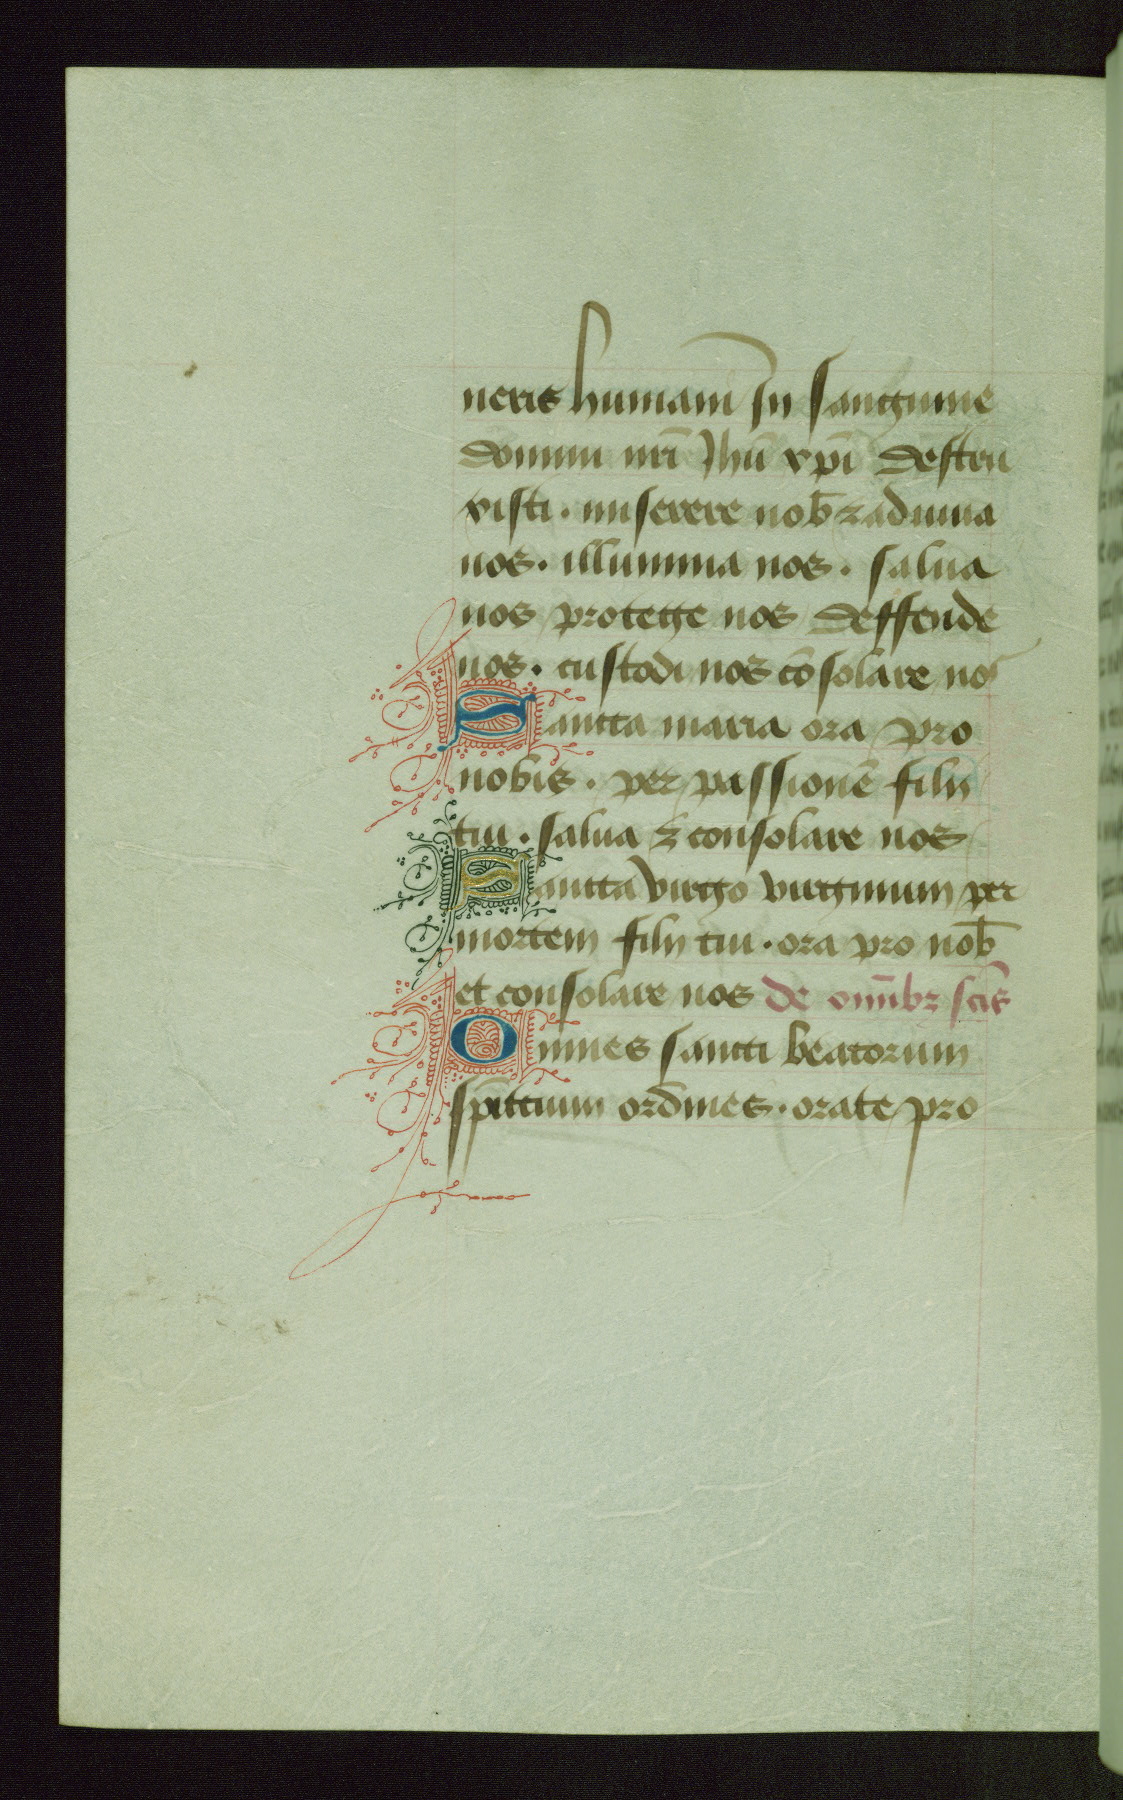 neris humani In sanguine
domini nr̄i Jhū xp̄i destru
xisti . miserere nob̄ ⁊ adiuua
nos . illumina nos . salua
nos protege nos deffende
nos . custodi nos cōsolare nos
Sancta maria ora pro
nobis . per passionē filii
tui . salua ⁊ consolare nos
Sancta virgo virginum per
mortem filii tui . ora pro nob̄
et consolare nos de om̄ibꝫ sc̄is
Omnes sancti beatorum
sp̄irituum ordines . orate pro